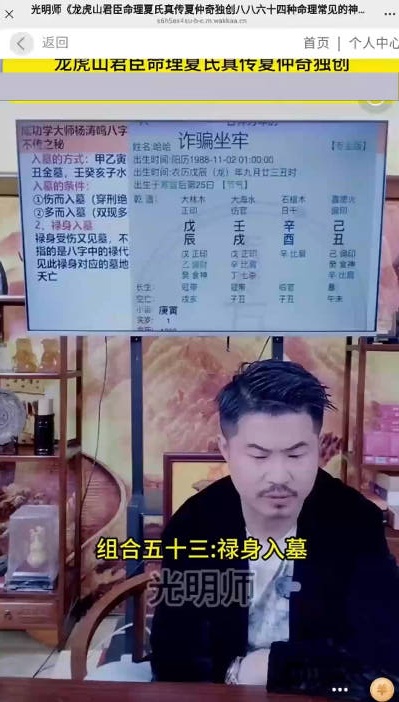 光明师《龙虎山君臣命理夏氏真传夏仲奇独创八八六十四种命理常见的神...
s6h5es4su-b-c.m.wakkaa.cn
返回
首页 | 个人中心
龙虎山君臣命理夏氏真传夏仲奇独创
成功学大师杨涛鸣八字
不传之秘
入墓的方式：甲乙寅
丑金墓，壬癸亥子水
入墓的条件：
①伤而入墓（穿刑绝
②多而入墓（双现多
2、禄身入墓
禄身受伤又见墓，不
指的是八字中的禄代
见此禄身对应的墓地
天亡
诈骗坐牢
姓名：哈哈
【专业版】
出生时间：阳历1988-11-02 01:00:00
出生时间：农历戊辰（龙）年九月廿三丑时
出生于寒露后第25日 【节气】
乾 造：
大林木 大海水 石榴木 霹雳火
正印 伤官 日干 偏印
戊 壬 辛 己
辰 戌 酉 丑
戊 正印 戊 正印 辛 比肩 己 偏印
乙 偏财 辛 比肩 癸 食神
癸 食神 丁 七杀 辛 比肩
长生： 冠带 临官 墓
空亡： 戌亥 子丑 子丑 午未
庚寅
1
组合五十三:禄身入墓
光明师